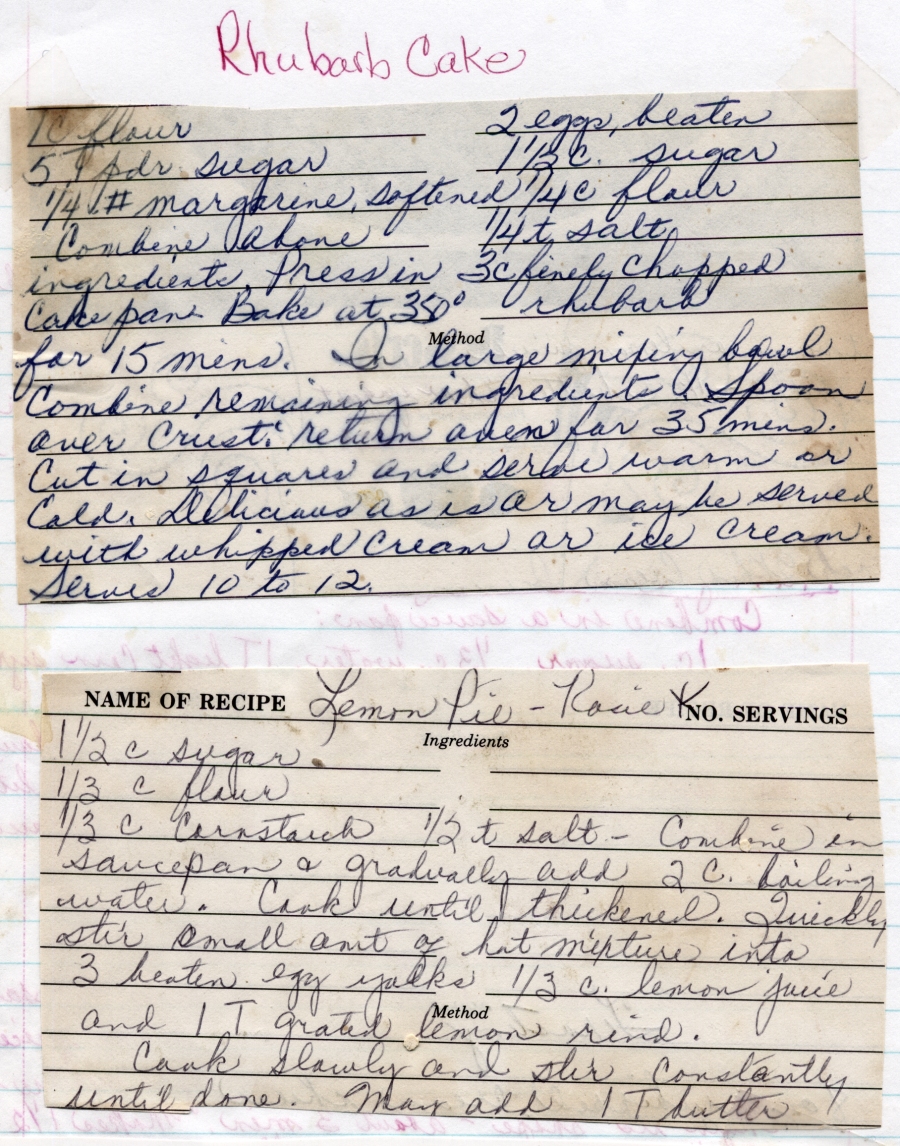 Rhubarb Cake
1 c flour
5 T pdr. sugar
1/4 # margarine, softened
Combine above
ingredients. Press in
cake pan. Bake at 350°
2 eggs, beaten
1 1/2 c. sugar
1/4 c flour
1/4 t salt
3 c finely chopped
rhubarb
Method
for 15 mins. In large mixing bowl
combine remaining ingredients. Spoon
over crust; return oven for 35 mins.
Cut in squares and serve warm or
cold. Delicious as is or may be served
with whipped cream or ice cream.
Serves 10 to 12.
Combine in a sauce pan:
NAME OF RECIPE Lemon Pie - Rosie K NO. SERVINGS
Ingredients
1 1/2 c sugar
1/3 c flour
1/3 c Cornstarch 1/2 t salt - Combine in
saucepan & gradually add 2 C. boiling
water. Cook until thickened. Quickly
stir small amt of hot mixture into
3 beaten egg yolks 1/3 c. lemon juice
Method
and 1 T grated lemon rind.
Cook slowly and stir constantly
until done. May add 1 T butter